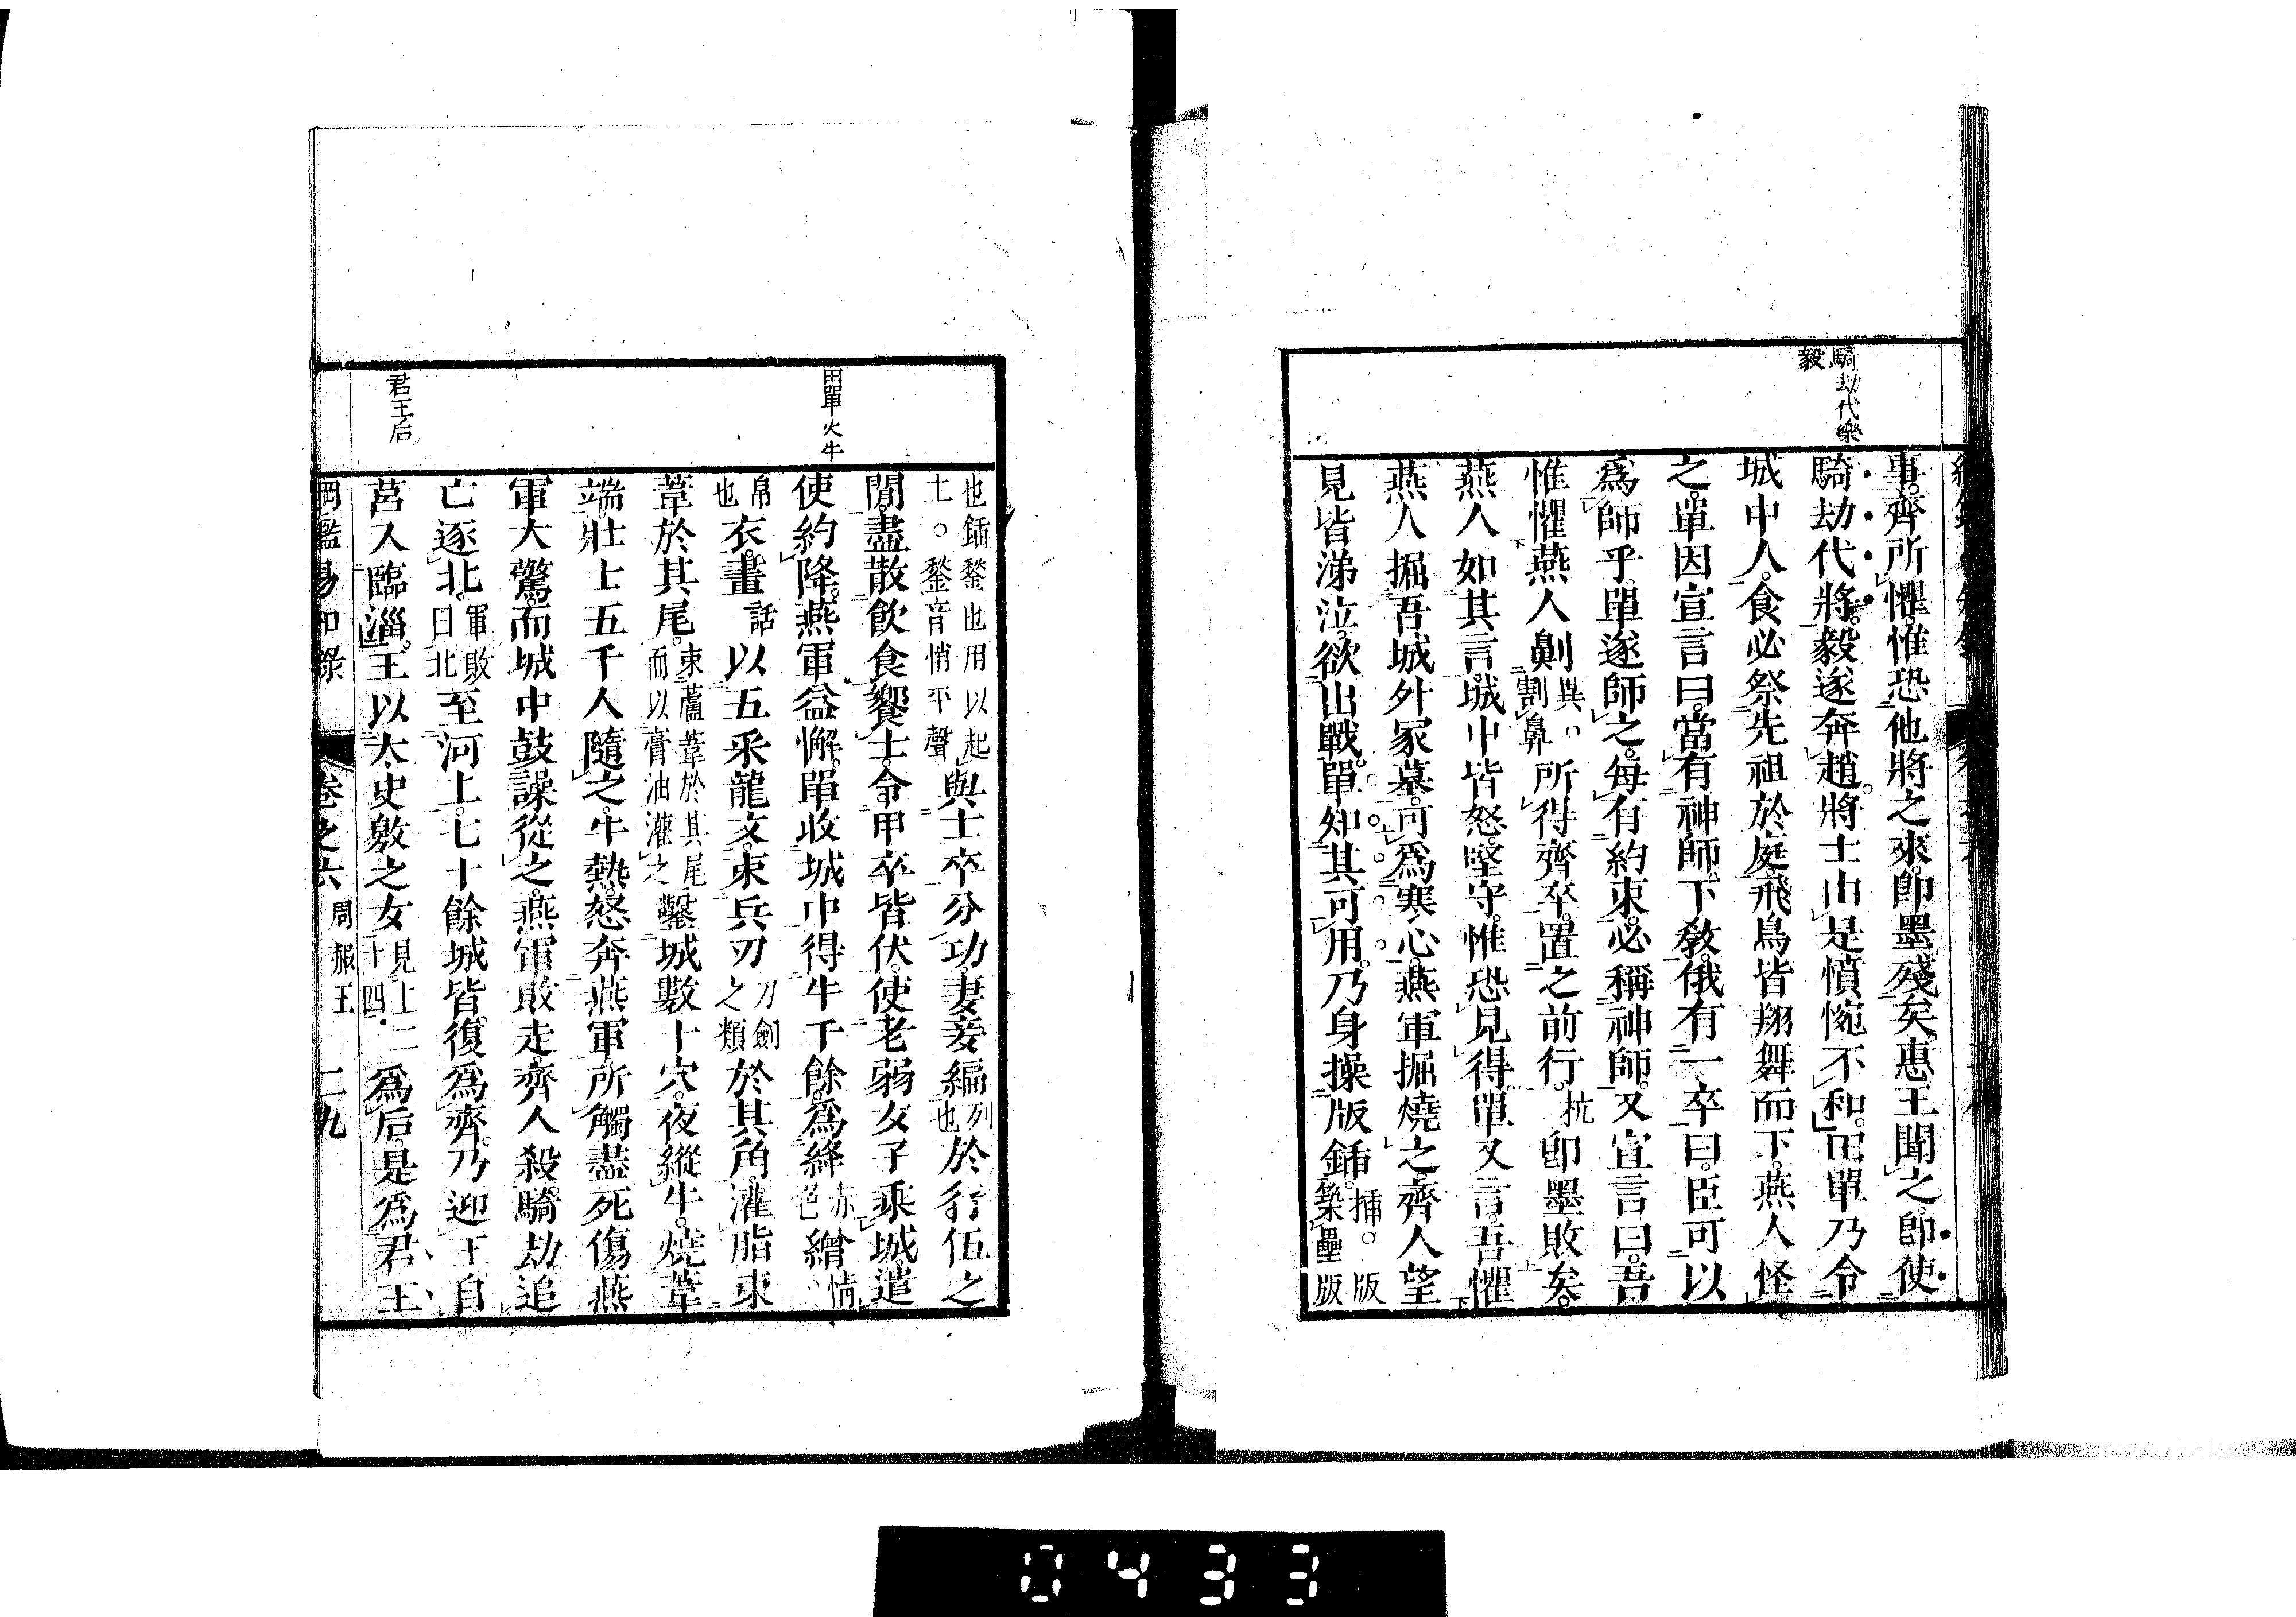 騎劫代樂
毅
事。齊所懼。惟恐他將之來。卽墨殘矣。惠王聞之。卽使
騎劫代將。毅遂奔趙。將士由是憤惋不和。田單乃令
城中人。食必祭先祖於庭。飛鳥皆翔舞而下。燕人怪
之。單因宣言曰。當有神師。下敎。俄有一卒曰。臣可以
爲師乎。單遂師之。每有約束。必稱神師。又宣言曰。吾
惟懼燕人劓異。割鼻所得齊卒。置之前行。杭卽墨敗矣。
燕人如其言。城中皆怒。堅守。惟恐見得。單又言。吾懼
燕人掘吾城外冢墓。可爲寒心。燕軍掘燒之。齊人望
見皆涕泣。欲出戰。單知其可用。乃身操版鍤。插。版築壘版
田單火牛
君王后
也鍤鍫也用以起土。鍫音悄平聲與士卒分功。妻妾編列也於行伍之
閒。盡散飲食。饗士。令甲卒皆伏。使老弱女子乘城。遣
使約降。燕軍益懈。單收城中得牛千餘。爲絳赤色繒情。
帛也衣。畫話以五采龍文。束兵刃刀劍之類於其角。灌脂束
葦於其尾。束蘆葦於其尾而以膏油灌之鑿城數十穴。夜縱牛。燒葦
端。壯士五千人隨之。牛熱。怒奔燕軍。所觸盡死傷。燕
軍大驚。而城中鼓譟從之。燕軍敗走。齊人殺騎劫。追
亡逐北。軍敗曰北至河上。七十餘城皆。復爲齊。乃迎王自
莒入臨淄。王以太史敫之女見上二十四。爲后。是爲君王
綱鑑易知錄 卷之六 周赧王 二九